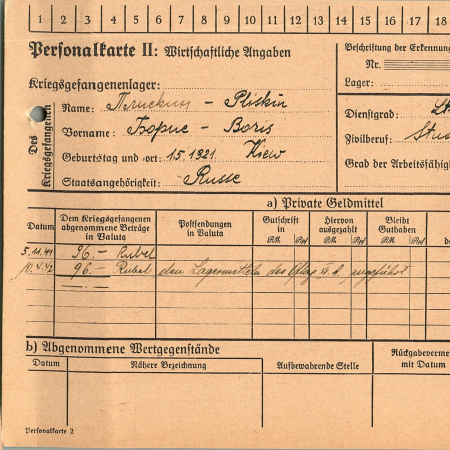 1 2 3 4 5 6 7 8 9 10 11 12 13 14 15 16 17 18
Personalkarte II: Wirtschaftliche Angaben
Beschriftung der Erkennung
Nr.
Lager:
Kriegsgefangenenlager:
Des Kriegsgefangenen
Name: Плискин - Pliskin
Vorname: Борис - Boris
Geburtstag und -ort: 1.5.1921. Kiew
Staatsangehörigkeit: Russe
Dienstgrad:
Zivilberuf: Stud
Grad der Arbeitsfähig
a) Private Geldmittel
Datum
Dem Kriegsgefangenen abgenommene Beträge in Valuta
Postsendungen in Valuta
Gutschrift in
RM Pf
Hiervon ausgezahlt
RM Pf
Bleibt Guthaben
RM Pf
5.11.41 96.- Rubel
10.4.42 96.- Rubel den Lagermitteln des Oflag angeführt
b) Abgenommene Wertgegenstände
Datum
Nähere Bezeichnung
Aufbewahrende Stelle
Rückgabeverme
mit Datum
Personalkarte 2